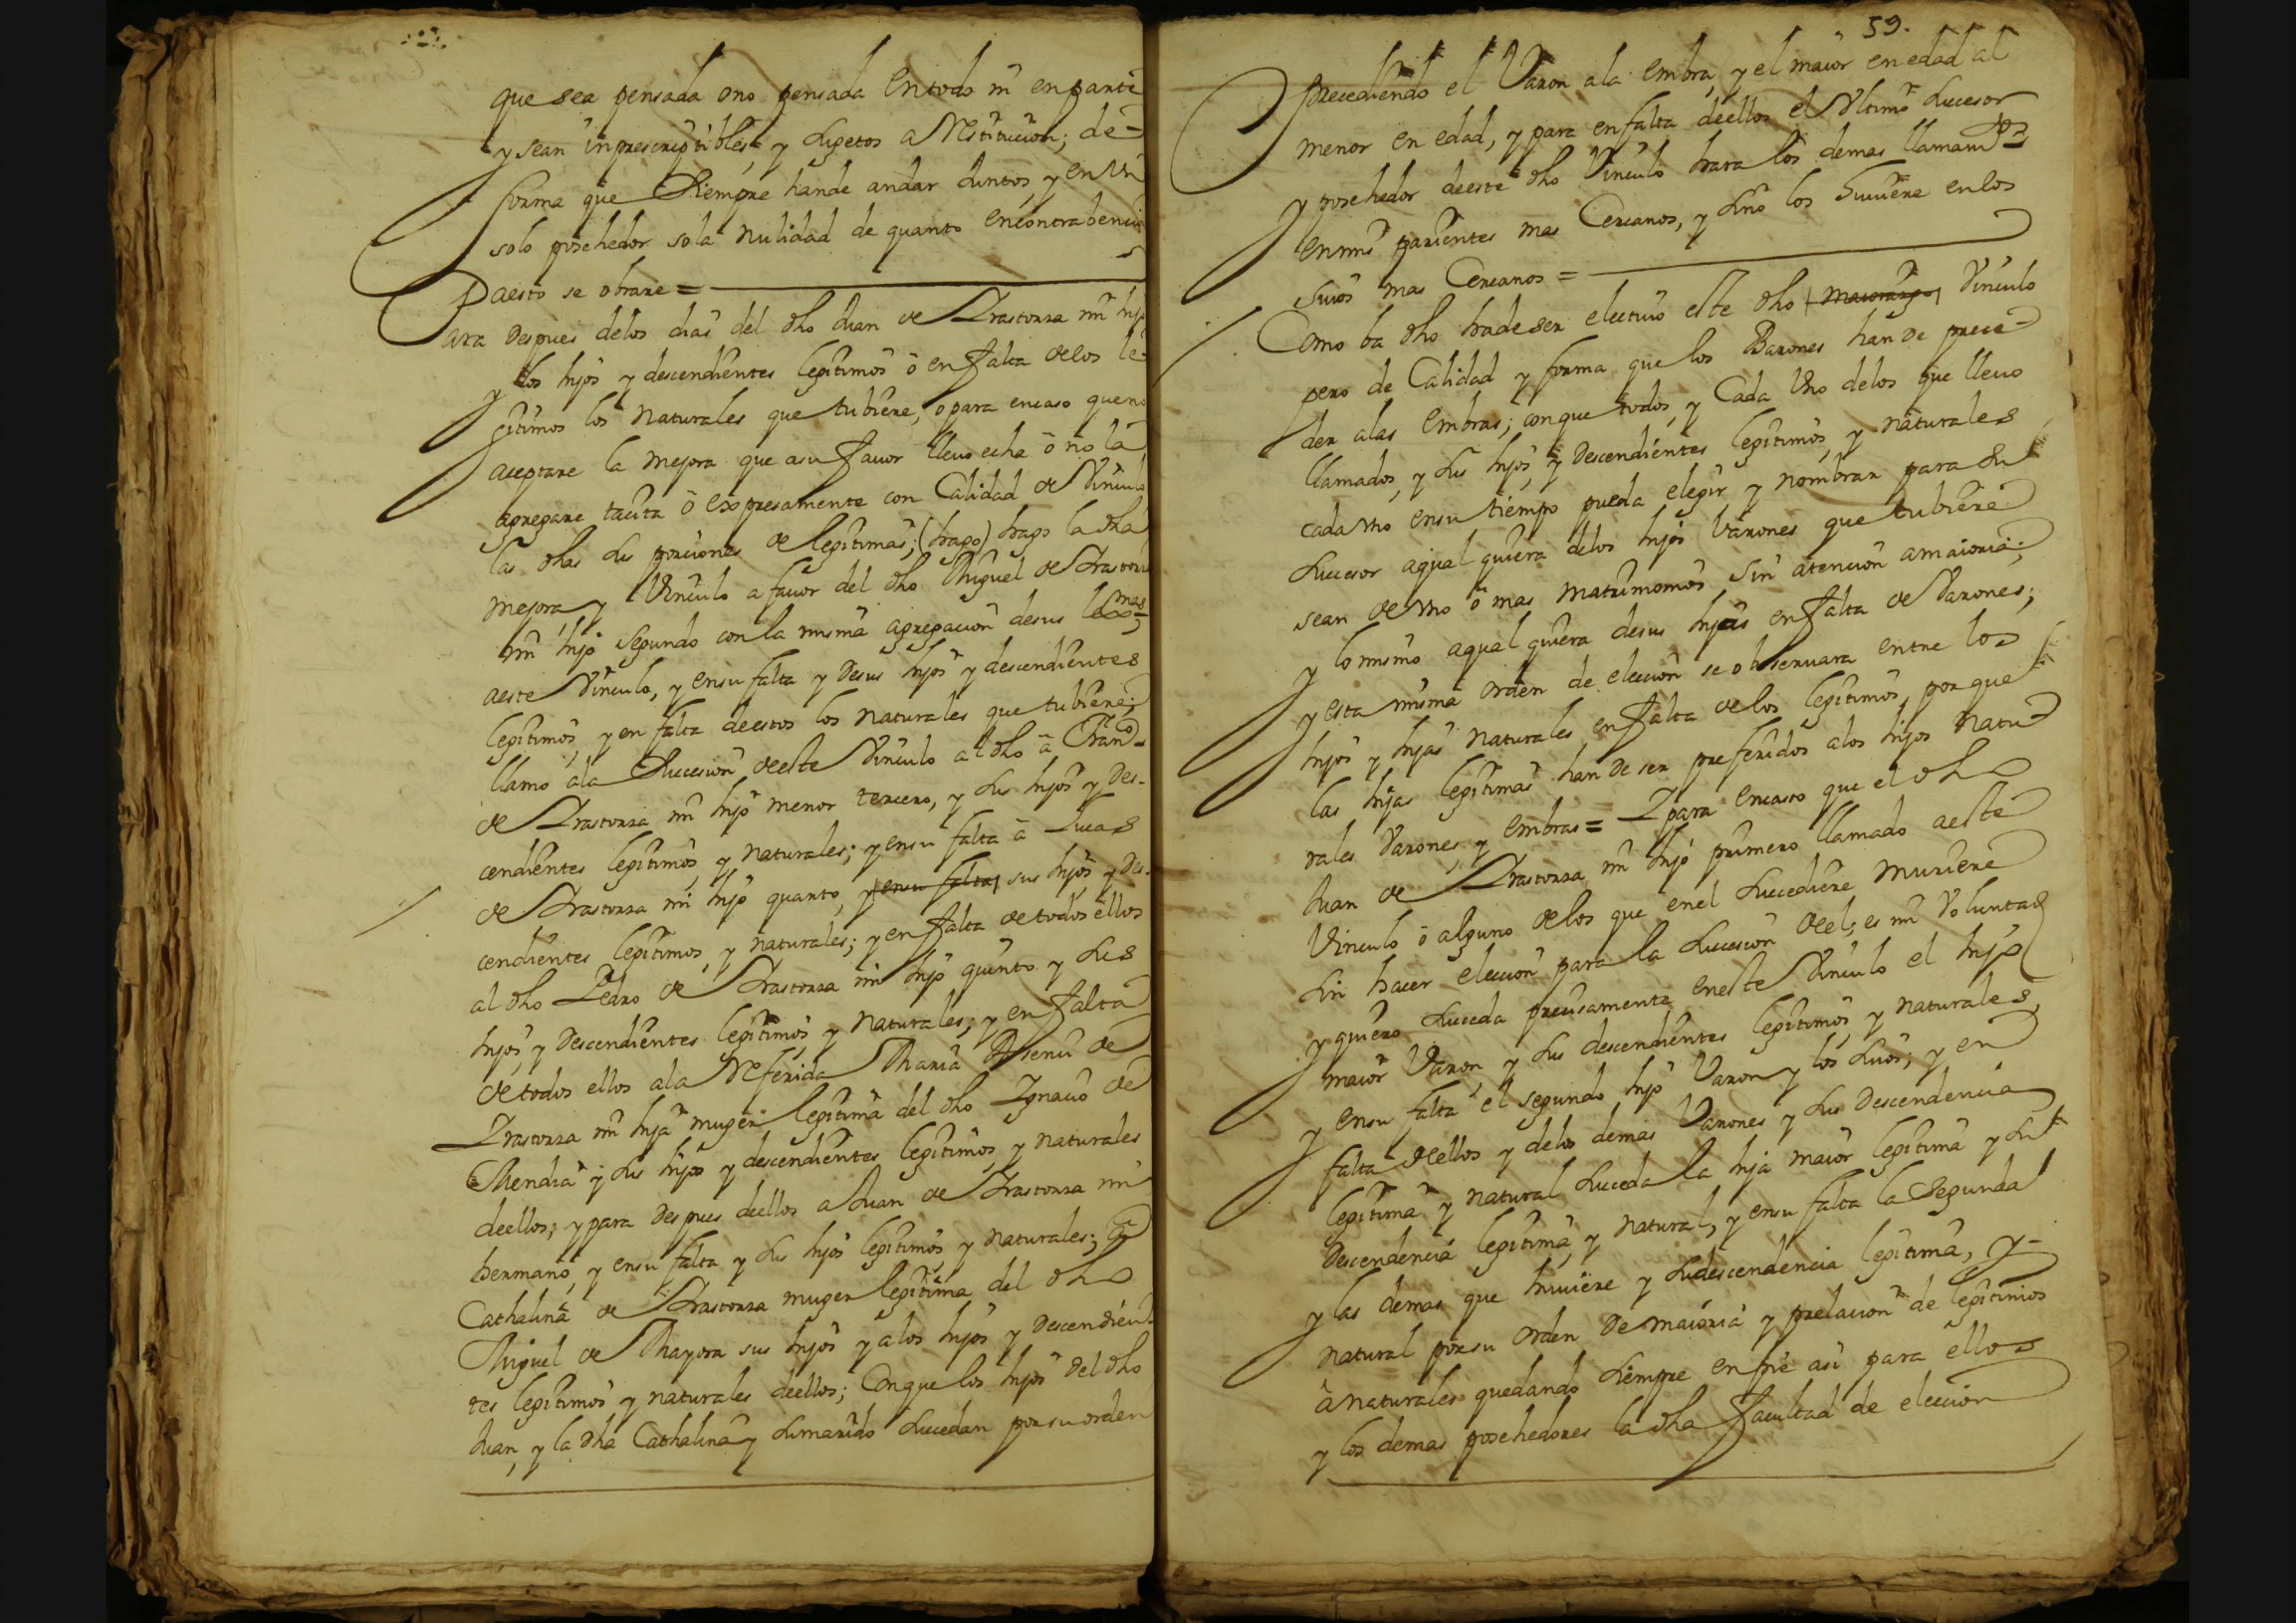 que sea pensada o no pensada en todo ni en parte
y sean inprescriptibles, y sugetos a restitucion; de
forma que siempre hande andar Juntos, y en un
solo posehedor sola nulidad de quanto en contrabencion
a esto se obrare =
Para despues delos dias del dho Juan de Irastorza mi hijo
y los hijos y descendientes legitimos ó en falta delos le-
gitimos los naturales que tubiere, o para encaso que no
aceptare la mejora que asu favor llevo echa ó no la
agregare tacita ó expresamente con Calidad de Vinculo
las dhas sus porciones de legitimas; (hago) hago la dha
mejora, y Vinculo a favor del dho Miguel de Irastorza
mi hijo segundo con la misma agregacion desus lexmas;
aeste Vinculo, y ensu falta y desus hijos y descendientes
legitimos, y en falta deestos los naturales que tubiere;
llamo ala succesion deeste Vinculo al dho á Franco
de Irastorza mi hijo menor tercero, y sus hijos y des-
cendientes legitimos, y naturales; y ensu falta á Lucas
de Irastorza mi hijo quarto, y ensu falta, sus hijos y des-
cendientes legitimos, y naturales; y en falta detodos ellos
al dho Pedro de Irastorza mi hijo quinto y sus
hijos, y descendientes legitimos y naturales; y en falta
de todos ellos ala referida Maria de
Irastorza mi hija muger legitima del dho Ignacio de
Mendia y sus hijos y descendientes legitimos, y naturales
deellos; y para despues deellos a Juan de Irastorza mi
hermano, y ensu falta y sus hijos legitimos, y naturales; á
Cathalina de Irastorza muger legitima del dho
Miguel de Mayora sus hijos y alos hijos y descendien-
tes legitimos y naturales deellos; Con que los hijos del dho
Juan, y la dha Cathalina y su marido succedan por su orden
59.
precediendo el Varon ala embra, y el maior en edad al
menor en edad, y para en falta deellos el Vltimo succesor
y posehedor deeste dho Vinculo hara los demas llamamtos
enmis parientes mas Cercanos, y sino los huviere enlos
suios mas Cercanos =
Como ba dho hade ser electivo este dho maiorazgo Vinculo
pero de Calidad y forma que los Barones han de prece-
der alas embras; con que todos, y Cada Vno delos que llevo
llamados, y sus hijos, y descendientes legitimos, y naturales
cada vno ensu tiempo pueda elegir y nombrar para su
succesor aqual quiera delos hijos Varones que tubiere
sean de vno ó mas matrimonios sin atencion a maioria;
y lo mismo aqual quiera desus hijas en falta de Varones;
y esta misma orden de eleccion se observara entre los
hijos y hijas naturales en falta delos legitimos, porque
las hijas legitimas han de ser preferidos alos hijos natu-
rales Varones, y embras = Y para encaso que el dho
Juan de Irastorza mi hijo primero llamado aeste
Vinculo ó alguno delos que enel succediere muriere
sin hacer eleccion para la succesion deel; es mi Voluntad
y quiero succeda precisamente eneste Vinculo el hijo
maior Varon, y sus descendientes legitimos, y naturales,
y ensu falta el segundo hijo Varon y los suios; y en
falta deellos y delos demas Varones y sus descendencia
legitima y natural succeda la hija maior legitima y su
descendencia legitima, y natural, y ensu falta la segunda
y las demas que huviere y sudescendencia legitima, y
natural por su orden de maioria y prelacion de legitimos
á naturales quedando siempre en pie asi para ellos
y los demas posehedores la dha facultad de eleccion